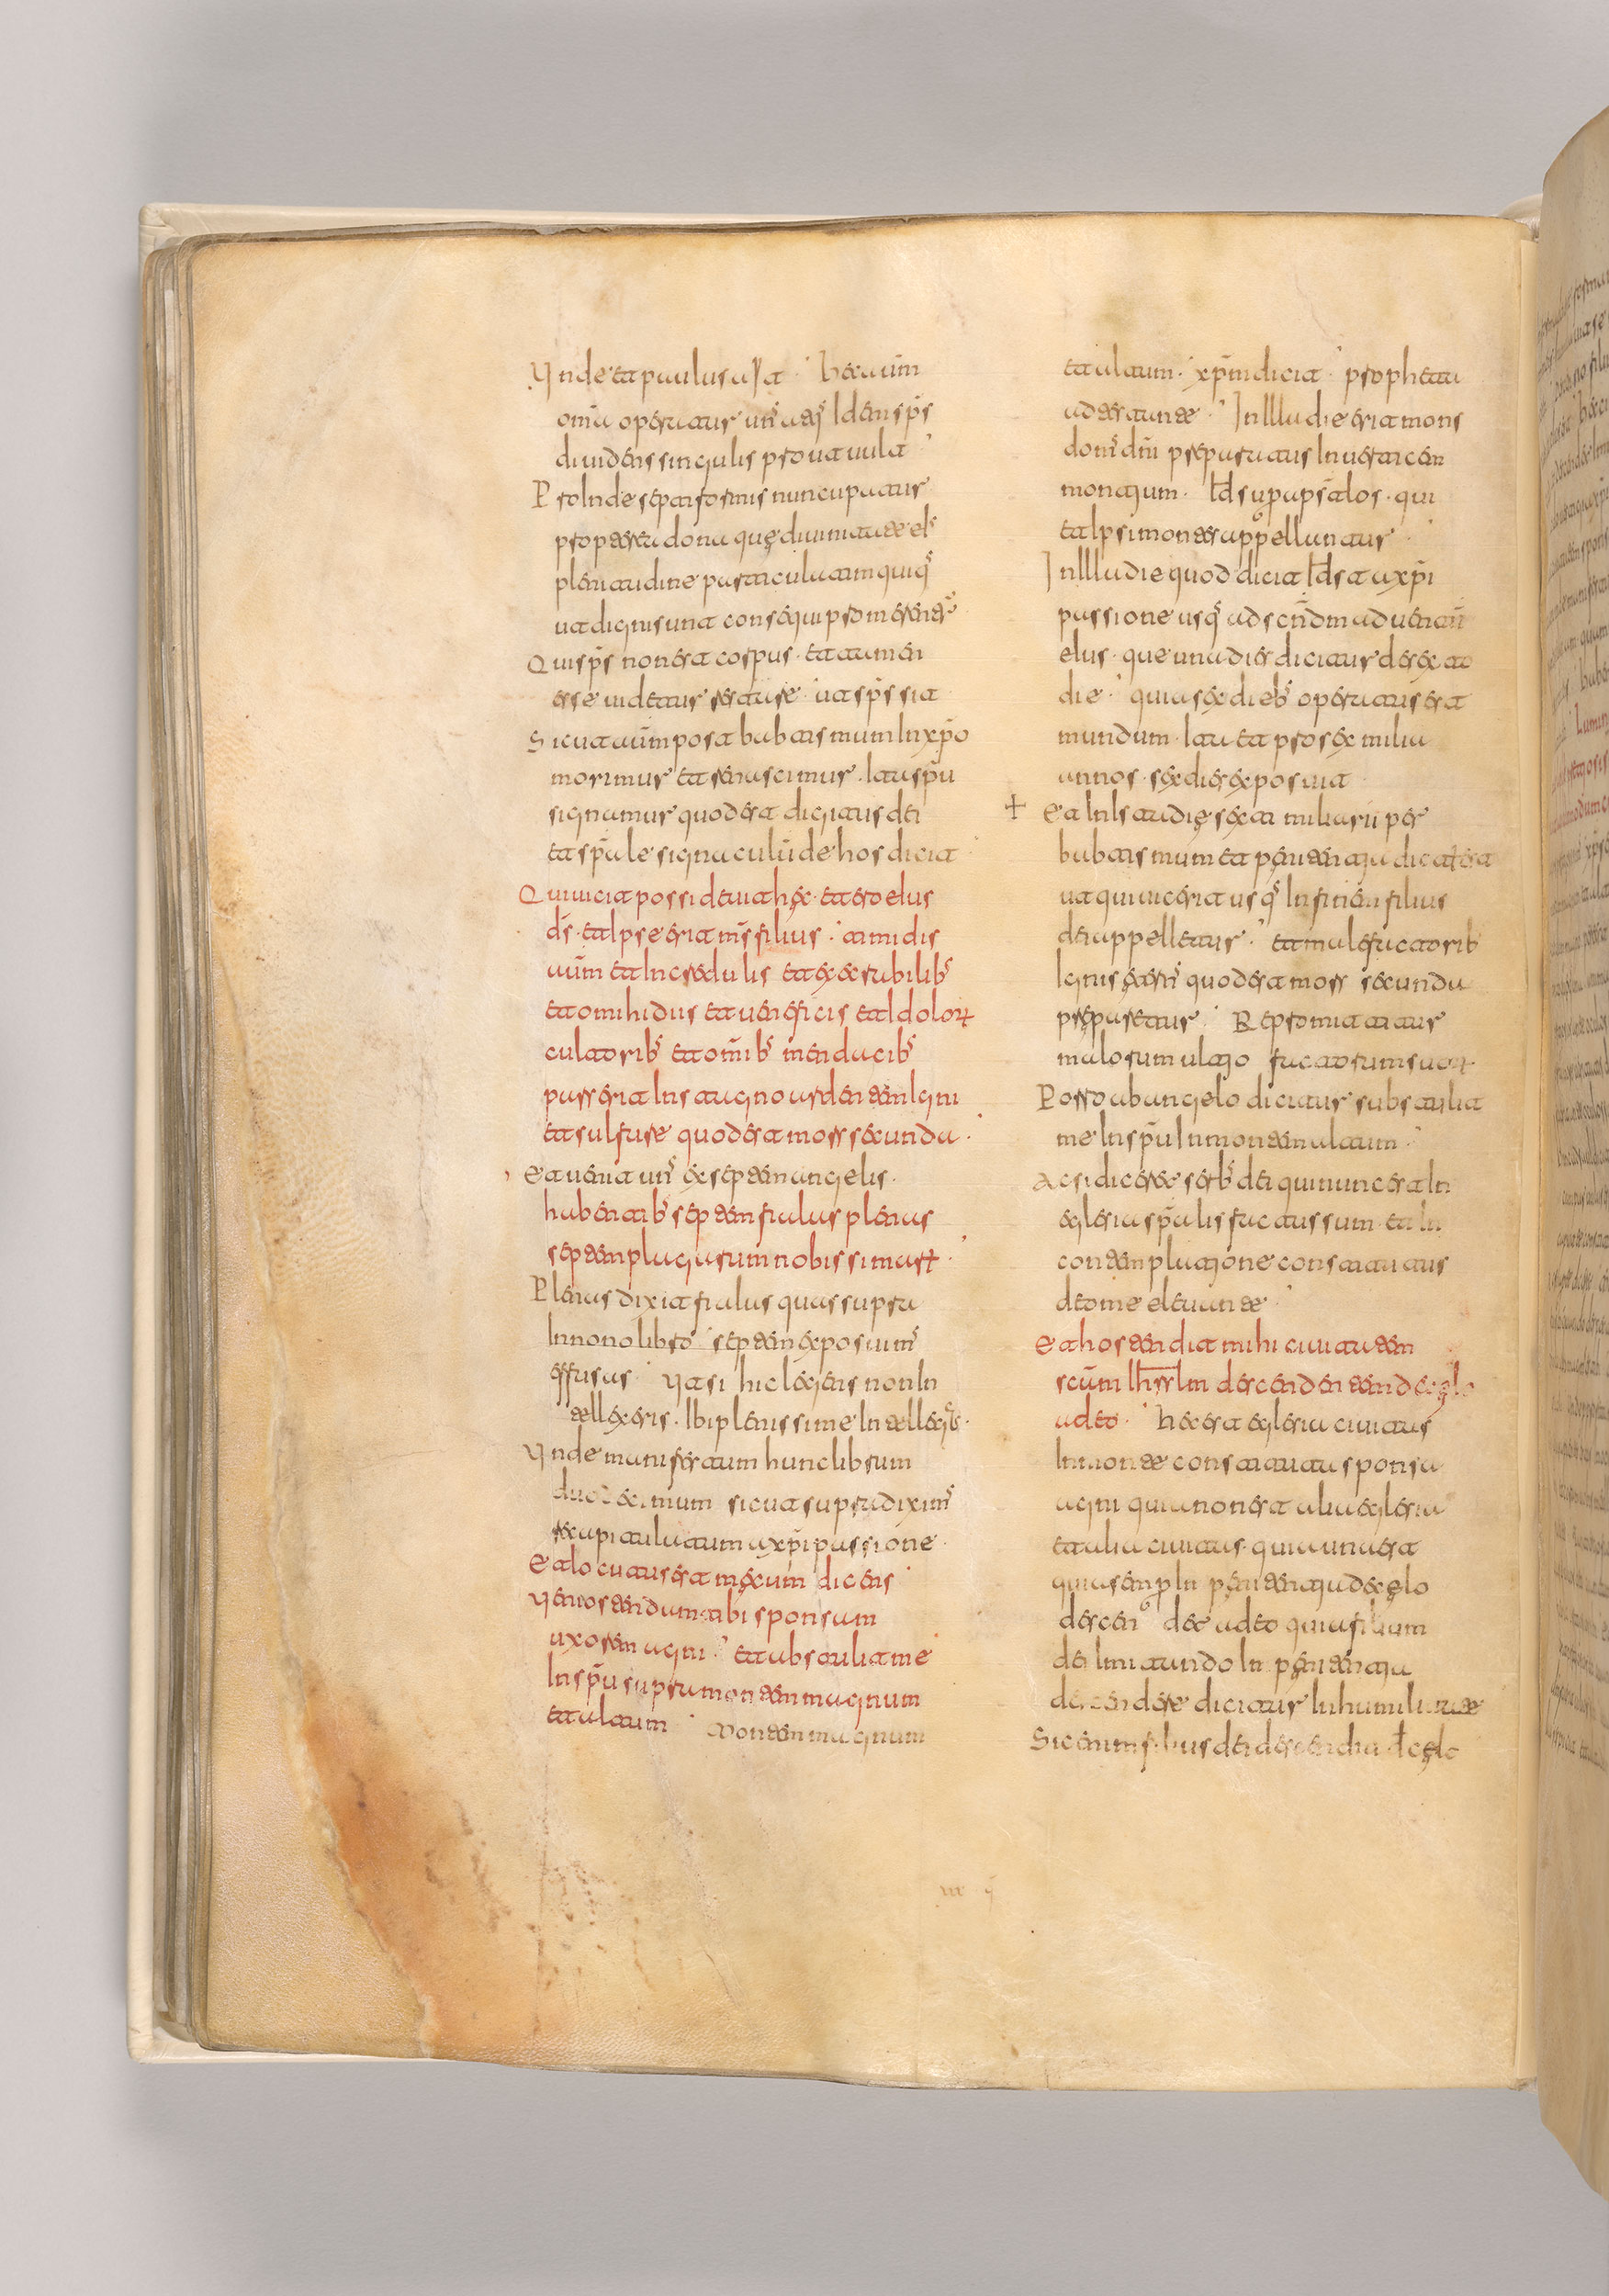 Unde et paulus ait · hec aūm
omīa operatur uns̄ atq' Idem sp̄s
diuidens singulis prout uult
Proinde septiformis nuncupatur
propter dona quę diuinitate ei'
plenitudine particulatim quiq'
ut digni sunt consequi promerent'
Qui sp̄s non est corpus · et tamen
esse uidetur septuse · ut sp̄s sit
Sicut aūm post babtismum In xp̄o
morimur et renascimur · Ita sp̄u
signamur quod est digitus dei
et sp̄ale signaculū de hos dicit
Qui uicit possidebit hęc · et ero eius
ds̄ · et Ipse erit mīs filius · timidis
aūm et Incredulis et execrabilib'
et omihidiis et ueneficis et Idolor
cultorib' et omīb' mendacib'
pars erit Ins tagno ardentem Igni
et sulfure quod est mors secunda ·
Et uenit un' ex septem angelis ·
habentib' septem fialas plenas
septem plagarum nobissimar
Plenas dixit fialas quas supra
In nono libro septem exposuim'
effusas Ut si hic legens non In
tellexeris · Ibi plenissime Intelleg's ·
Unde manifestum hunc librum
duodecimum sicut supra dixim'
recapitulatum a xp̄i passione ·
Et locutus est mecum dicens
Ueni ostendam tibi sponsam
uxorem agni · et abstulit me
In sp̄u supra montem magnum
et altum Montem magnum
et altum · xp̄m dicit · prophetau
ad esaiam Inlla die erit mons
dom' dn̄i preparatus In uerticem
montium · Id sup apsālos · qui
et Ipsi montes appellantur
Inlla die quod dicit Id st a xp̄i
passione usq' ad scn̄dm aduentū
eius · que una dies dicitur de sex to
die · quia sex dieb' operatus est
mundum · Ita et pro sex milia
annos · sex dies exposuit
Et In Is ta die sexti miliarii per
babtismum et penitentia dicat est
ut qui uicerit usq' In finem filius
dei appelletur · et malefactorib'
Ignis eternʼ quod est mors secunda
preparetur · Repromittitur
malorum ultio factorum suor
Porro ab angelo dicitur subs tulit
me In sp̄u In montem altum ·
Ac si diceret serb' dei qui nunc est In
eglesia sp̄alis factus sum et In
contemplatione constitutus
deo me eleuante
Et hostendit mihi ciuitatem
scām Ihrslm descendentem de cęlo
a deo · Hec est eglesia ciuitas
In monte constituta sponsa
agni quia non est alia eglesia
et alia ciuitas · quia una est
quia semp In penitentia de cęlo
descendet a deo quia filium
dei Imitando In penitentia
descendere dicitur In humilitate
Sic enim filius dei descendit de cęlo